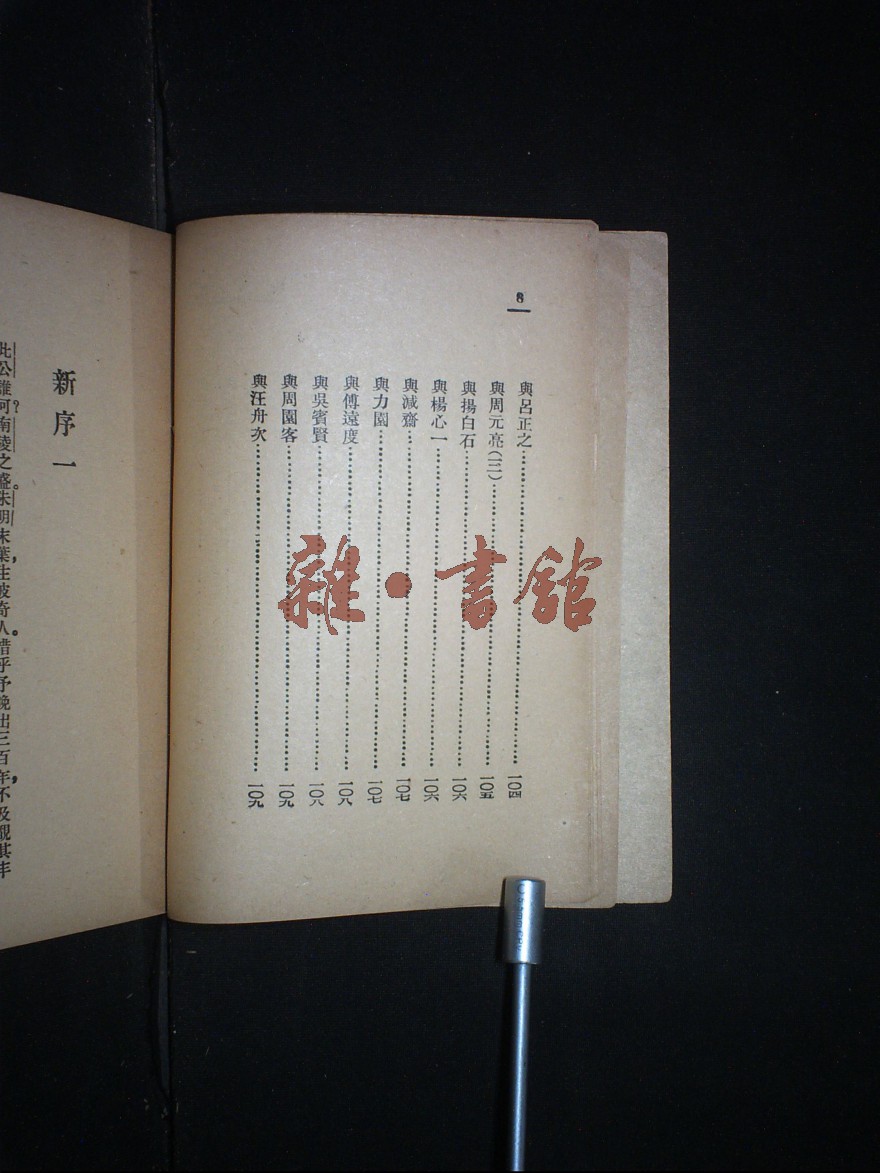 8
與呂正之 一〇四
與周元亮(三) 一〇五
與揚白石 一〇六
與楊心一 一〇六
與減齋 一〇七
與力園 一〇七
與傅遠度 一〇八
與吳賓賢 一〇八
與周園客 一〇九
與汪舟次 一〇九
雜·書館
新序一
此公誰?河南陵之盛。朱明末葉,生彼奇人。惜乎予晚出三百年,不及觀其丰